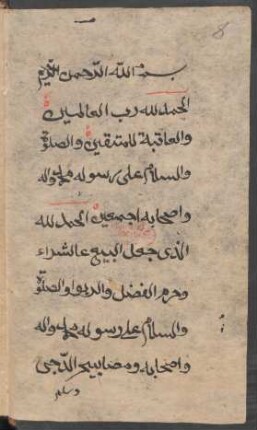 8
بسم الله الرحمن الرحيم
الحمد لله رب العالمين
والعاقبة للمتقين والصلوة
والسلام على رسوله محمد واله
واصحابه اجمعين الحمد لله
الذى جعل البيع عالشراء
وحرم الفضل والربوا والصلوة
والسلام على رسوله محمد واله
واصحابه ومصابيح الدجى
وسلم